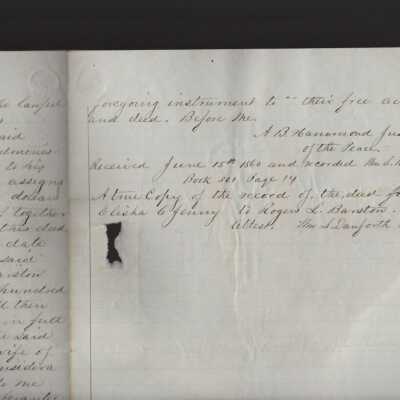 he lawful
said
to his
assigns
dollars
together
this deed
date
said
arston
hundred
then
in full
said
wife of
onsidera
to me
foregoing instrument to be their free ac
and deed. Before Me.
A B Hammond Jus
of the Peace.
Received June 15th 1860 and recorded Wm S.
Book 301 Page 14
A true Copy of the record of the deed fr
Elisha C Jenny to Rogers L. Barston.
Attest. Wm S Danforth